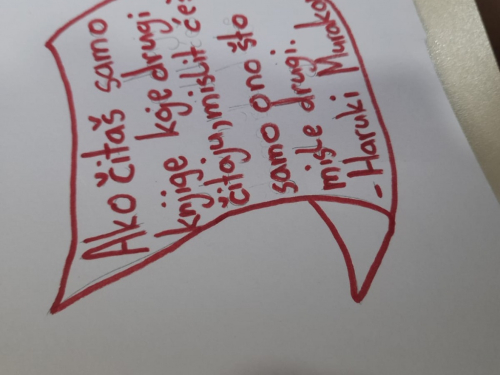 Ako čitaš samo
knjige koje drugi
čitaju, mislit ćeš
samo ono što
misle drugi.
- Haruki Murakami